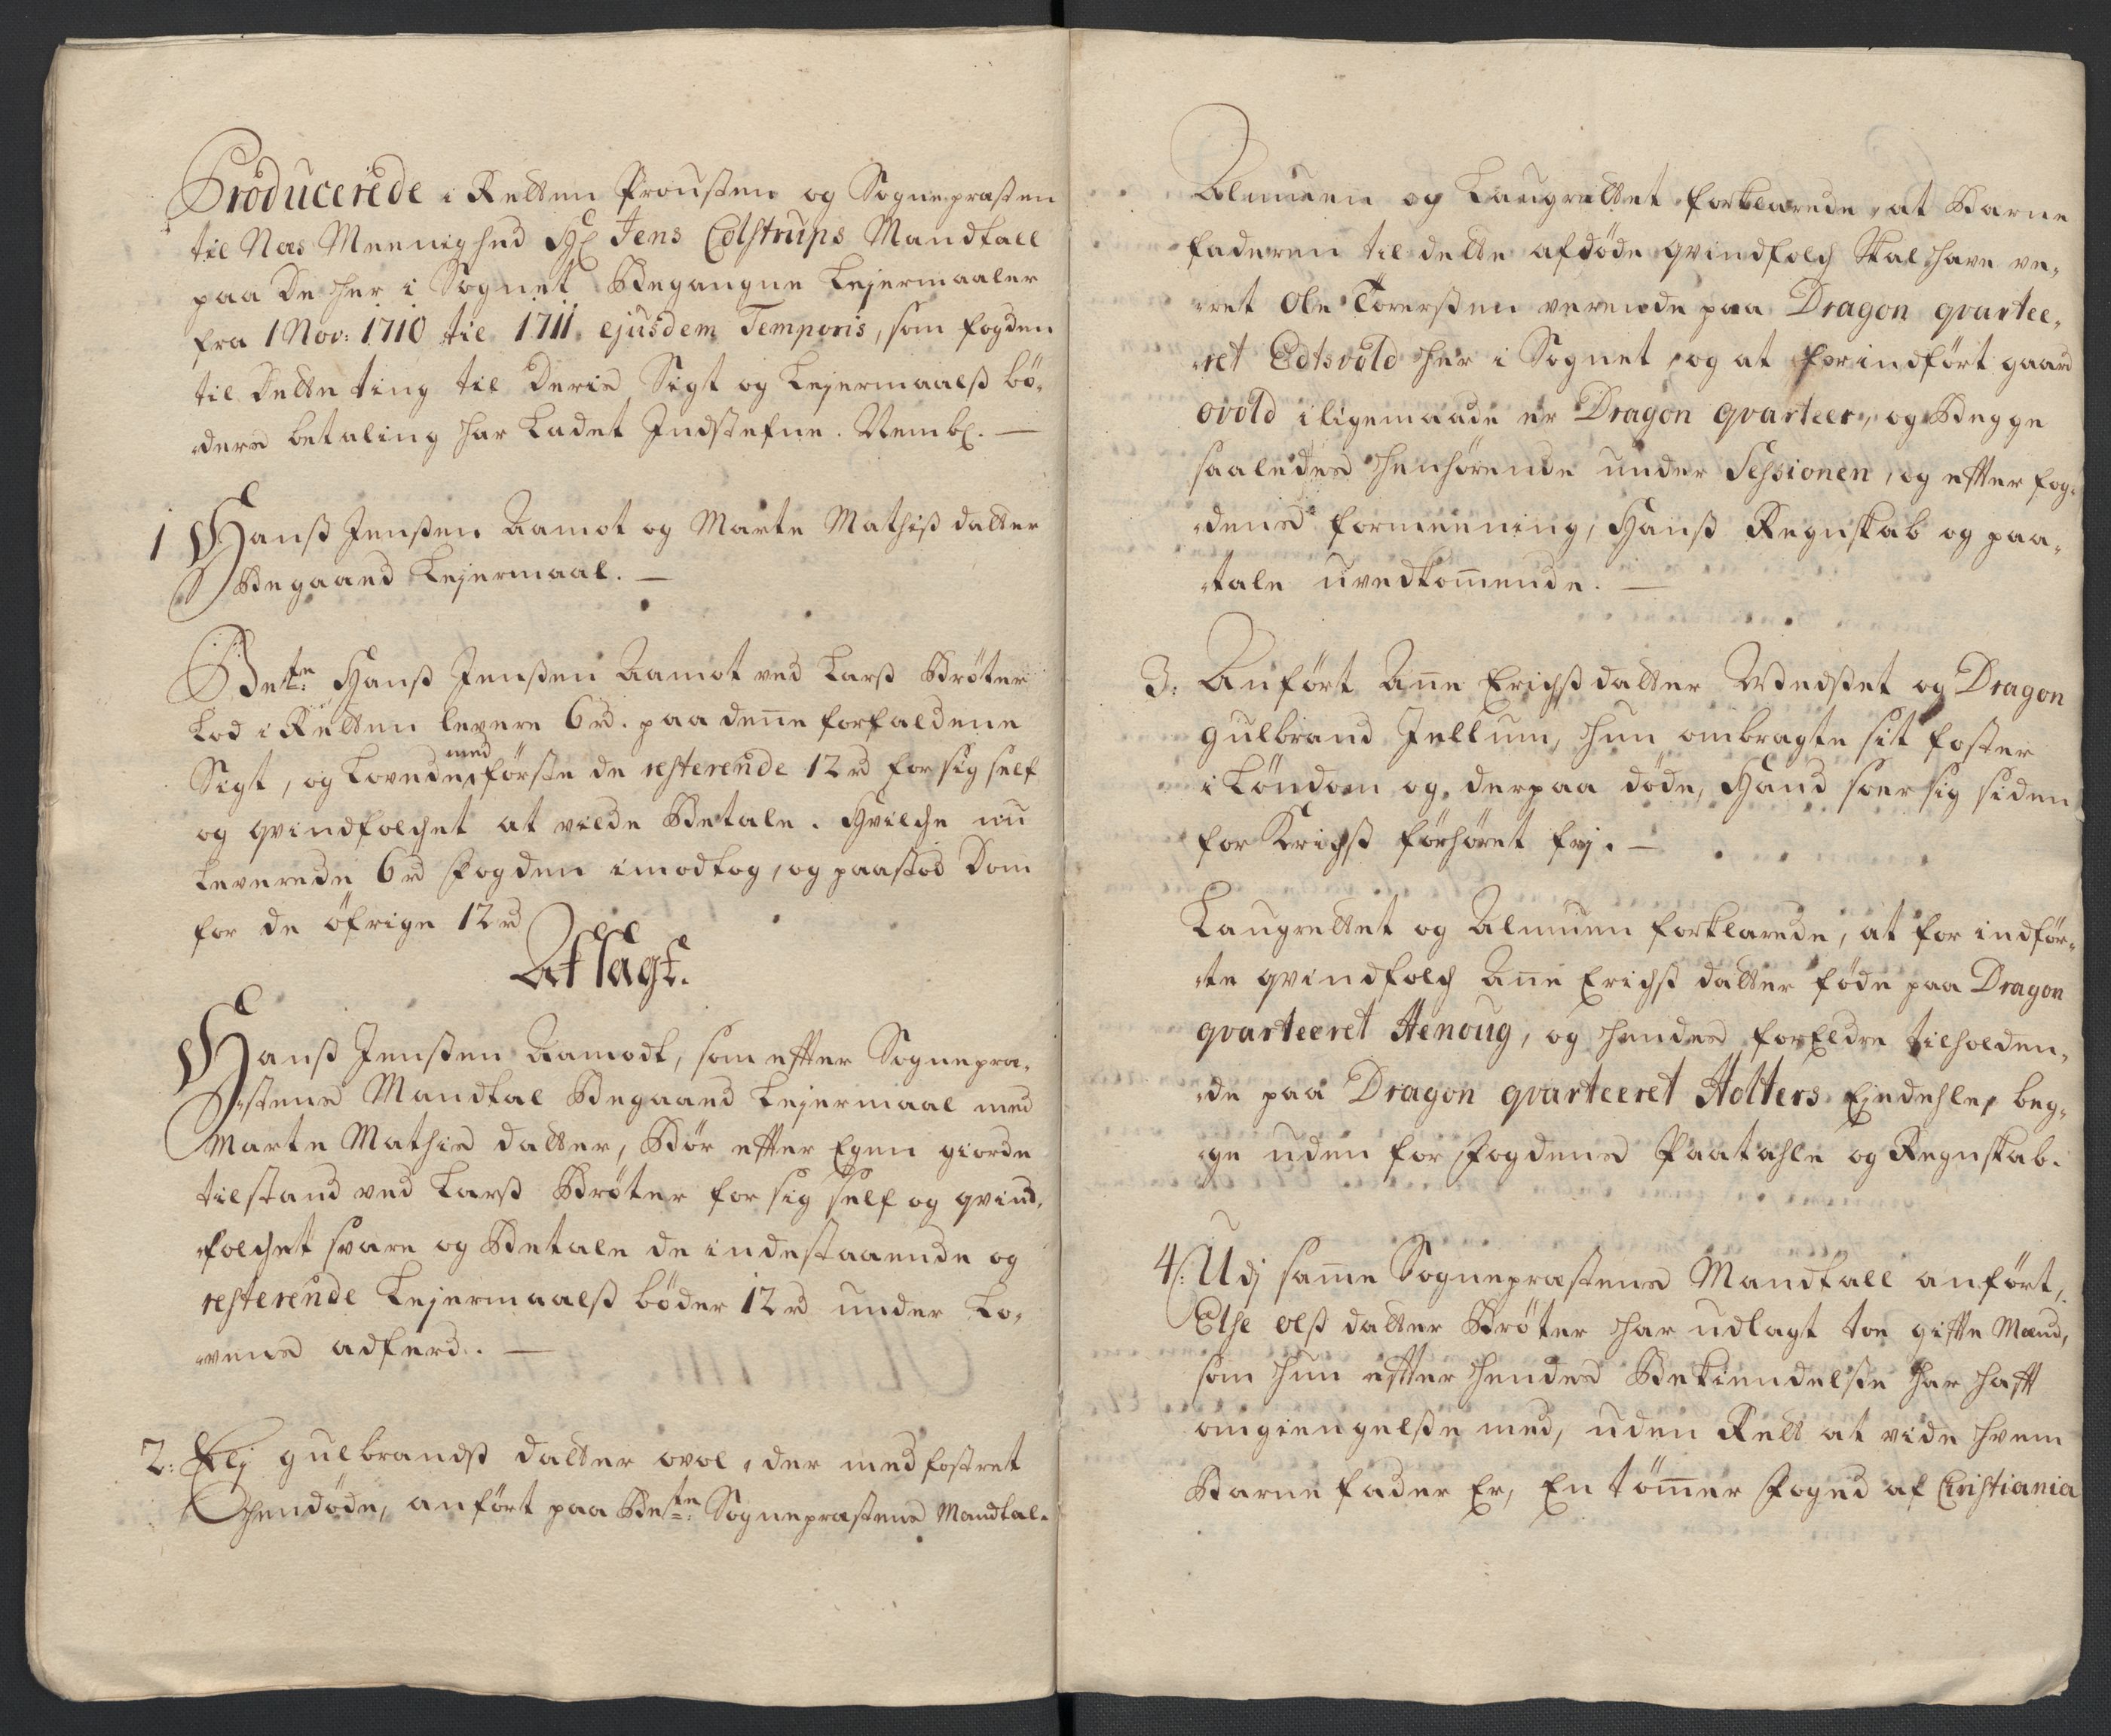 Producerede i Retten Prousten og Sognepræsten
til Næs Meenighed Hr Jens Colstrups Mandtall
paa De her i Sognet Begangne Lejermaaler
fra 1 Nov: 1710 til 1711 ejusdem Temporis, som fogden
til Dette ting til Deris Sigt og Lejermaalß bö-
ders betaling har Ladet Indstefne. Nembl. —
1 Hanß Jenßen Aamot og Marte Mathiß datter
Begaaed Lejermaal. —
Bete: Hanß Jenßen Aamot ved Larß Bröter
Lod i Retten levere 6 rd. paa denne forfaldene
Sigt, og Lovede med förste de resterende 12 rd for sig self
og qvindfolchet at vilde Betale. Hvilche nu
Leverede 6 rd Fogden imodtog, og paastod Dom
for de öfrige 12 rd
Afsagt.
Hanß Jenßen Aamodt, som effter Sognepræ-
stens Mandtal Begaaed Lejermaal med
Marte Mathis datter, Bör effter Egen giorde
tilstand ved Larß Bröter for sig self og qvind-
folchet svare og Betale de indestaaende og
resterende Lejermaalß böder 12 rd under Lo-
vens adferd. —
2: Elj gulbrandß datter ovol, der med fostret
hendöde, anfört paa Bete: Sognepræstens Mandtal.
Almuen og Laugrettet forklarede, at Barne
faderen til dette afdöde qvindfolch skal have ve-
ret Ole Torerßen verende paa Dragon qvartee-
ret Edtsvold her i Sognet, og at forindfört gaard
ovold iligemaade er Dragon qvarteer, og Begge
saaledes henhörende under Sessionen, og effter fog-
dens formeening, Hanß Regnskab og paa-
tale uvedkommende. —
3: Anfört Anne Erichß datter Wedset og Dragon
gulbrand Jellum, hun ombragte sit foster
i Löndom og derpaa döde, Hand soer sig siden
for Krigß forhöret frj. —
Laugrettet og Almuen forklarede, at for indför-
te qvindfolch Anne Erichß datter föde paa Dragon
qvarteeret Henoug, og hendes forEldre tilholden-
de paa Dragon qvarteeret Holters Ejedehle, beg-
ge uden for Fogdens Paatahle og Regnskab.
4: Udj samme Sognepræstens Mandtall anfört,
Else olß datter Bröter har udlagt toe giffte Mænd,
som hun effter hendes Bekiendelße har hafft
omgiengelße med, uden Rett at vide hvem
Barne fader Er, En tömmer Foged af Christiania